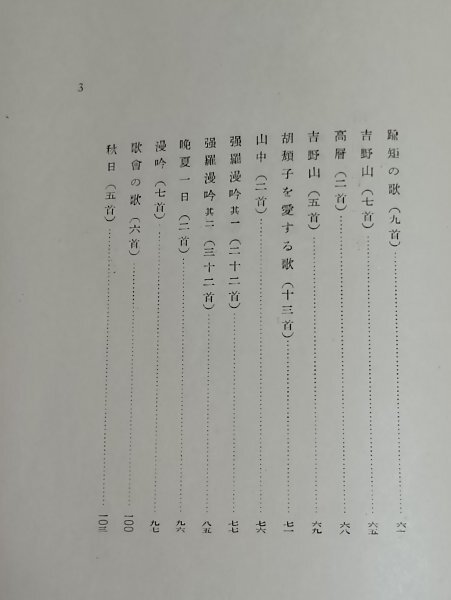 踰矩の歌（九首）……六一
吉野山（七首）……六五
高層（二首）……六八
吉野山（五首）……六九
胡頽子を愛する歌（十三首）……七一
山中（二首）……七六
强羅漫吟其一（二十二首）……七七
强羅漫吟其二（三十二首）……八五
晚夏一日（二首）……九六
漫吟（七首）……九七
歌會の歌（六首）……一〇〇
秋日（五首）……一〇三
3